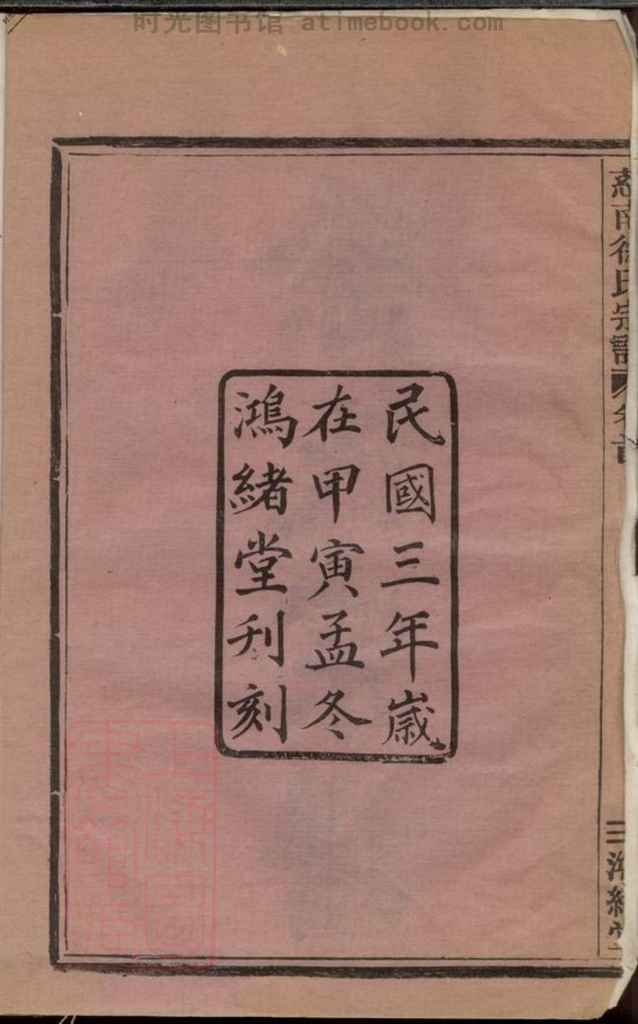 时光图书馆 atimebook.com
民國三年歲
在甲寅孟冬
鴻緒堂刋刻
南徐氏宗譜 卷首
三 鴻緒堂